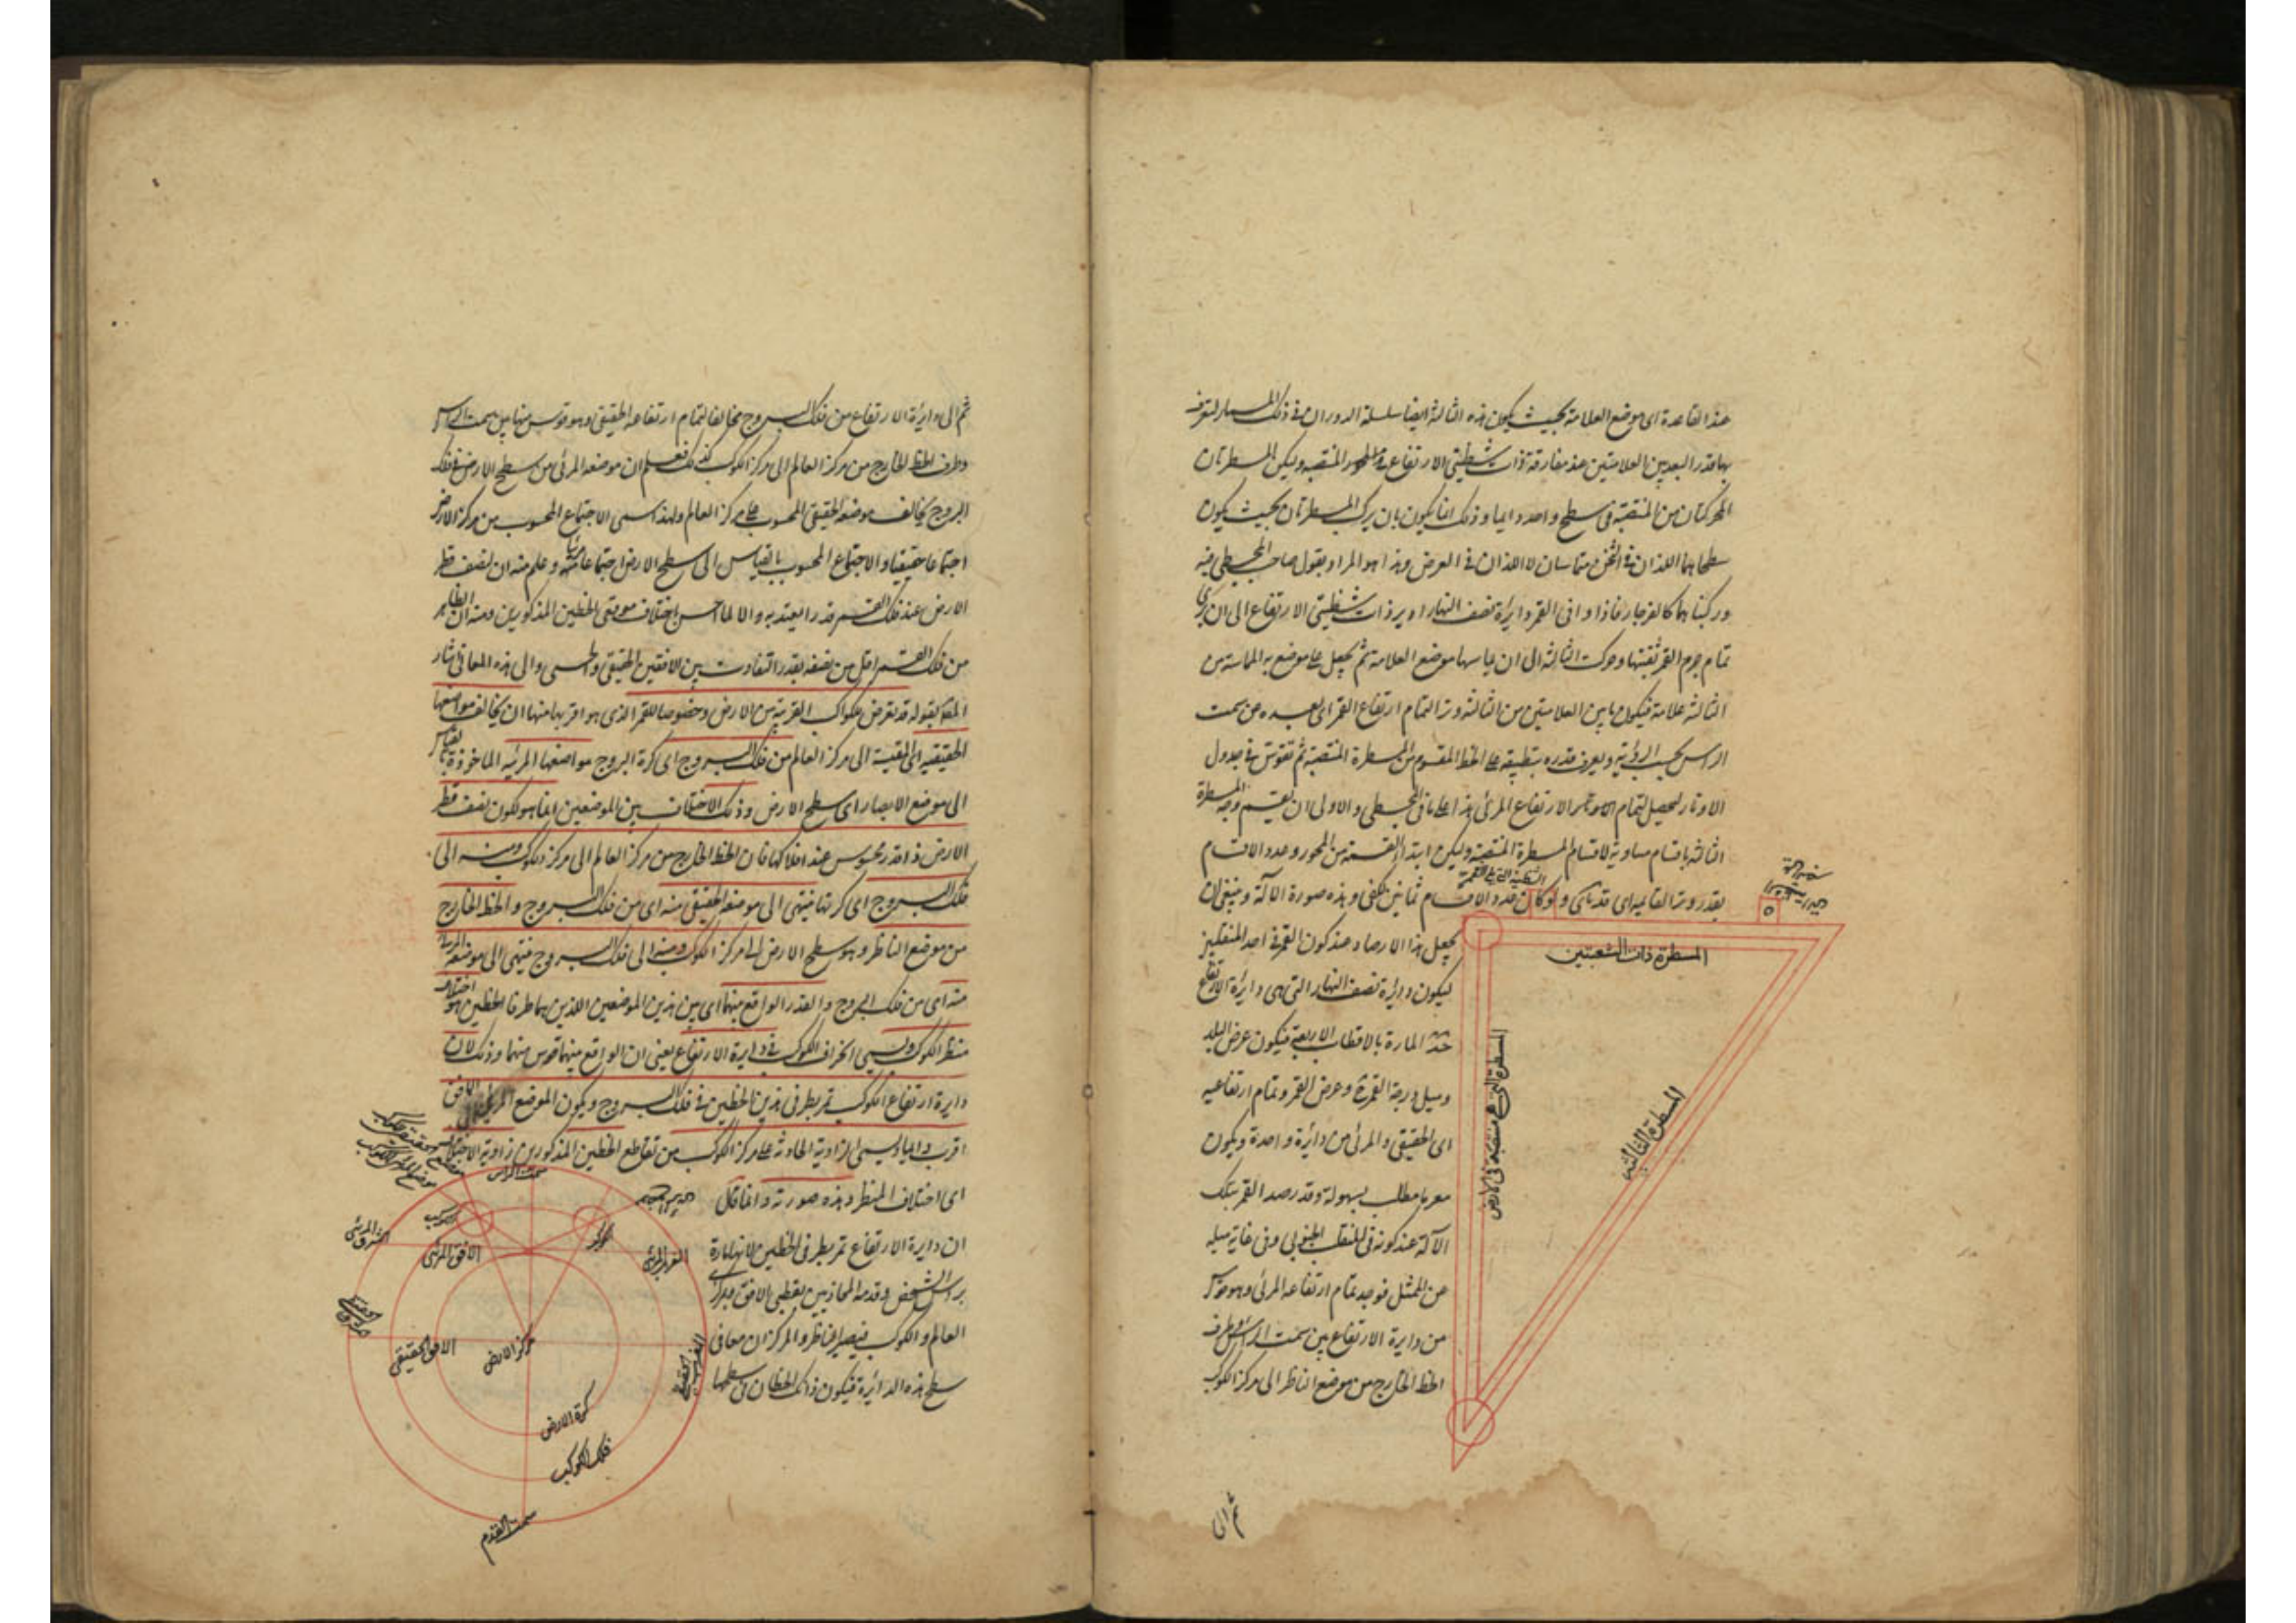 عند القاعدة اى موضع العلامة بحيث يكون هذه الثالثة ايضا سلسلة الدوران فى ذلك المسمار لتعرف
بها قدر البعد بين العلامتين عند مفارقة ذات شظيتى الارتفاع المنتصبة وليكن المسطرتان
المحركتان من المنتصبة فى سطح واحد دايما وذلك انما يكون بان يركب المسطرتان بحيث يكون
سطحاهما اللذان فى الثخن متماسان لا اللذان فى العرض وهذا هو المراد بقول صاحب المجسطى فيه
وركبناهما كالفرجار فاذا وافى القمر دايرة نصف النهار ادير ذات شظيتى الارتفاع الى ان يرى
تمام جرم القمر ثقبتها وحركت الثالثة الى ان يماسها موضع العلامة ثم يجعل على موضع به المماسة من
الثالثة علامة فيكون ما بين العلامتين من الثالثة وتر التمام ارتفاع القمر اى بعده عن سمت
الراس بحسب الرؤية ويعرف قدره بتطبيقه على الخط المقسوم من المسطرة المنتصبة ثم تقوس فى جدول
الاوتار ليحصل تمام الارتفاع المرئى هذا على ما فى المجسطى والاولى ان يقسم وجه المسطرة
الثالثة باقسام مساوية لاقسام المسطرة المنتصبة وليكن ابتداء القسمة من المحور وعدد الاقسام
بقدر وتر القائمة اى فد نا كح ولو كان عدد الاقسام ثمانين لكفى وهذه صورة الآلة وينبغى ان
يجعل هذا الارصاد عند كون القمر فى احد المنقلبين
ليكون دايرة نصف النهار التى هى دايرة الارتفاع
المارة بالاقطاب الاربعة فيكون عرض البلد
وميل درجة القمر وعرض القمر وتمام ارتفاعيه
اى الحقيقى والمرئى من دائرة واحدة ويكون
معرفة ما مطلب بسهولة وقد رصد القمر بتلك
الآلة عند كونه فى المنقلب الجنوبى وفى غاية ميله
عن الممثل فوجد تمام ارتفاعه المرئى وهو قوس
من دايرة الارتفاع بين سمت الراس وطرف
الخط الخارج من موضع الناظر الى مركز الكوكب
المسطرة ذات الشعبتين
المسطرة التى هى منتصبة فى الارض
المسطرة الثالثة
ثم الى
ثم الى دايرة الارتفاع من فلك البروج مخالفا لتمام ارتفاعه الحقيقى وهو قوس منها بين سمت الراس
وطرف الخط الخارج من مركز العالم الى مركز الكوكب كذلك فعلم ان موضعه المرئى من سطح الارض فى فلك
البروج يخالف موضعه الحقيقى المحسوب على مركز العالم ولهذا سمى الاجتماع المحسوب من مركز الارض
اجتماعا حقيقيا والاجتماع المحسوب بالقياس الى سطح الارض اجتماعا مرئيا وعلم منه ان لنصف قطر
الارض عند فلك القمر قدرا يعتد به والا لما احس اختلاف موقعى الخطين المذكورين ومنه ان الظاهر
من فلك القمر اقل من نصفه بقدر التفاوت بين الافقين الحقيقى والحسى والى هذه المعانى اشار
المص بقوله قد يعرض للكواكب القريبة من الارض وخصوصا للقمر الذى هو اقربها منها ان يخالف مواضعها
الحقيقية اى المقيسة الى مركز العالم من فلك البروج اى كرة البروج مواضعها المرئيه الماخوذة بالقياس
الى موضع الابصار اى سطح الارض وذلك الاختلاف بين الموضعين انما هو لكون نصف قطر
الارض ذا قدر محسوس عند افلاكها فان الخط الخارج من مركز العالم الى مركز الكوكب ومنه الى
فلك البروج اى كرتها فينتهى الى موضعه الحقيقى منه اى من فلك البروج والخط الخارج
من موضع الناظر وهو سطح الارض الى مركز الكوكب ومنه الى فلك البروج فينتهى الى موضعه المرئى
منه اى من فلك البروج والقدر الواقع بينهما اى بين هذين الموضعين اللذين هما طرفا الخطين هو اختلاف
منظر الكوكب ويسمى انحراف الكوكب فى دايرة الارتفاع يعنى ان الواقع بينهما قوس منها وذلك لان
دايرة ارتفاع الكوكب تمر بطرفى هذين الخطين فى فلك البروج ويكون الموضع المرئى الى الافق
اقرب دايما ويسمى الزاوية الحادثة على مركز الكوكب من تقاطع الخطين المذكورين زاوية الاختلاف
اى اختلاف المنظر وهذه صورته وانما قال
ان دايرة الارتفاع تمر بطرفى الخطين لانها مارة
براس الشخص وقدمه المحاذيين لقطبى الافق وبمركزى
العالم والكوكب فيصير الناظر والمركزان معا فى
سطح هذه الدائرة فيكون ذانك الخطان فى سطحها
سمت الراس
الكوكب
الافق المرئى
المشرق المرئى
المغرب المرئى
الافق الحقيقى
مركز الارض
المغرب الحقيقى
كرة الارض
فلك الكوكب
سمت القدم